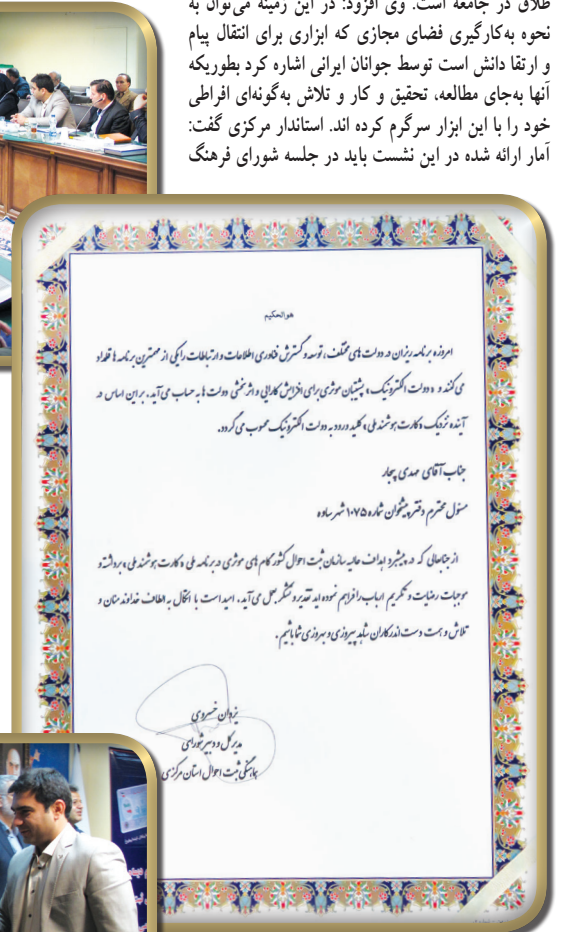 طلاق در جامعه است. وی افزود: در این زمینه می‌توان به
نحوه به‌کارگیری فضای مجازی که ابزاری برای انتقال پیام
و ارتقا دانش است توسط جوانان ایرانی اشاره کرد بطوریکه
آنها به‌جای مطالعه، تحقیق و کار و تلاش به‌گونه‌ای افراطی
خود را با این ابزار سرگرم کرده اند. استاندار مرکزی گفت:
آمار ارائه شده در این نشست باید در جلسه شورای فرهنگ
هوالحکیم
امروزه برنامه ریزان در دولت های مختلف، توسعه و گسترش فناوری اطلاعات و ارتباطات را یکی از مهمترین برنامه ها قلمداد
می کنند و «دولت الکترونیک» پشتیبان موثری برای افزایش کارایی و اثر بخشی دولت ها به حساب می آید. بر این اساس در
آینده نزدیک «کارت هوشمند ملی» کلید ورود به دولت الکترونیک محسوب می گردد.
جناب آقای مهدی پیجار
مسئول محترم دفتر پیشخوان شماره ۱۰۷۵ شهر ساوه
از جنابعالی که در پیشبرد اهداف عالیه سازمان ثبت احوال کشور گام های موثری در برنامه ملی «کارت هوشمند ملی» برداشته و
موجبات رضایت و تکریم ارباب را فراهم نموده اید تقدیر و تشکر بعمل می آید. امید است با اتکال به الطاف خداوند منان و
تلاش و همت دست اندرکاران شاهد پیروزی و بهروزی شما باشیم.
یزدان خسروی
مدیر کل و دبیر شورای
هماهنگی ثبت احوال استان مرکزی